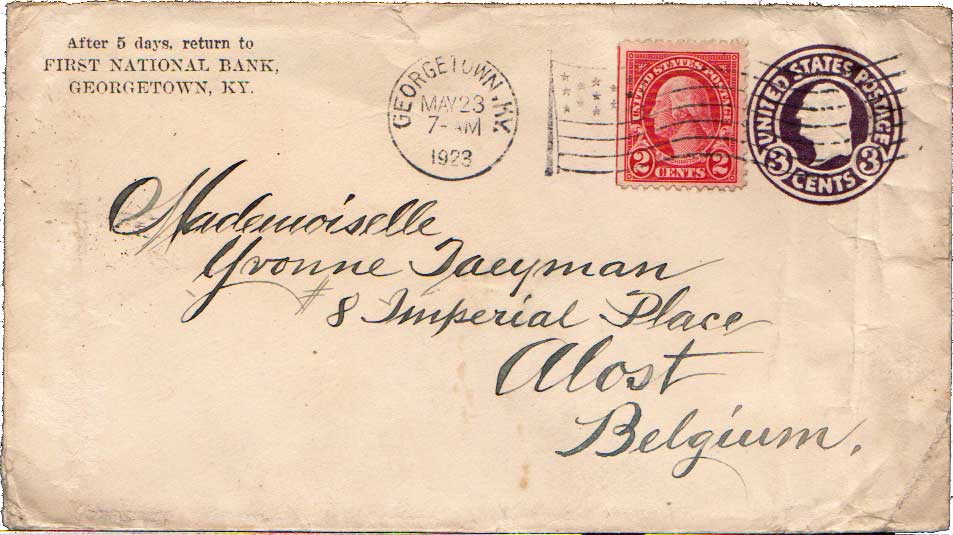 After 5 days, return to
FIRST NATIONAL BANK,
GEORGETOWN, KY.
GEORGETOWN, KY.
MAY 23
7-AM
1923
UNITED STATES POSTAGE
2 CENTS 2
UNITED STATES POSTAGE
3 CENTS 3
Mademoiselle
Yvonne Taeyman
# 8 Imperial Place
Alost
Belgium.